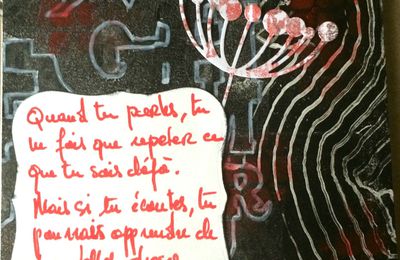 Quand tu parles, tu
ne fais que repeter ce
que tu sais déjà.
Mais si tu écoutes, tu
pourrais apprendre de